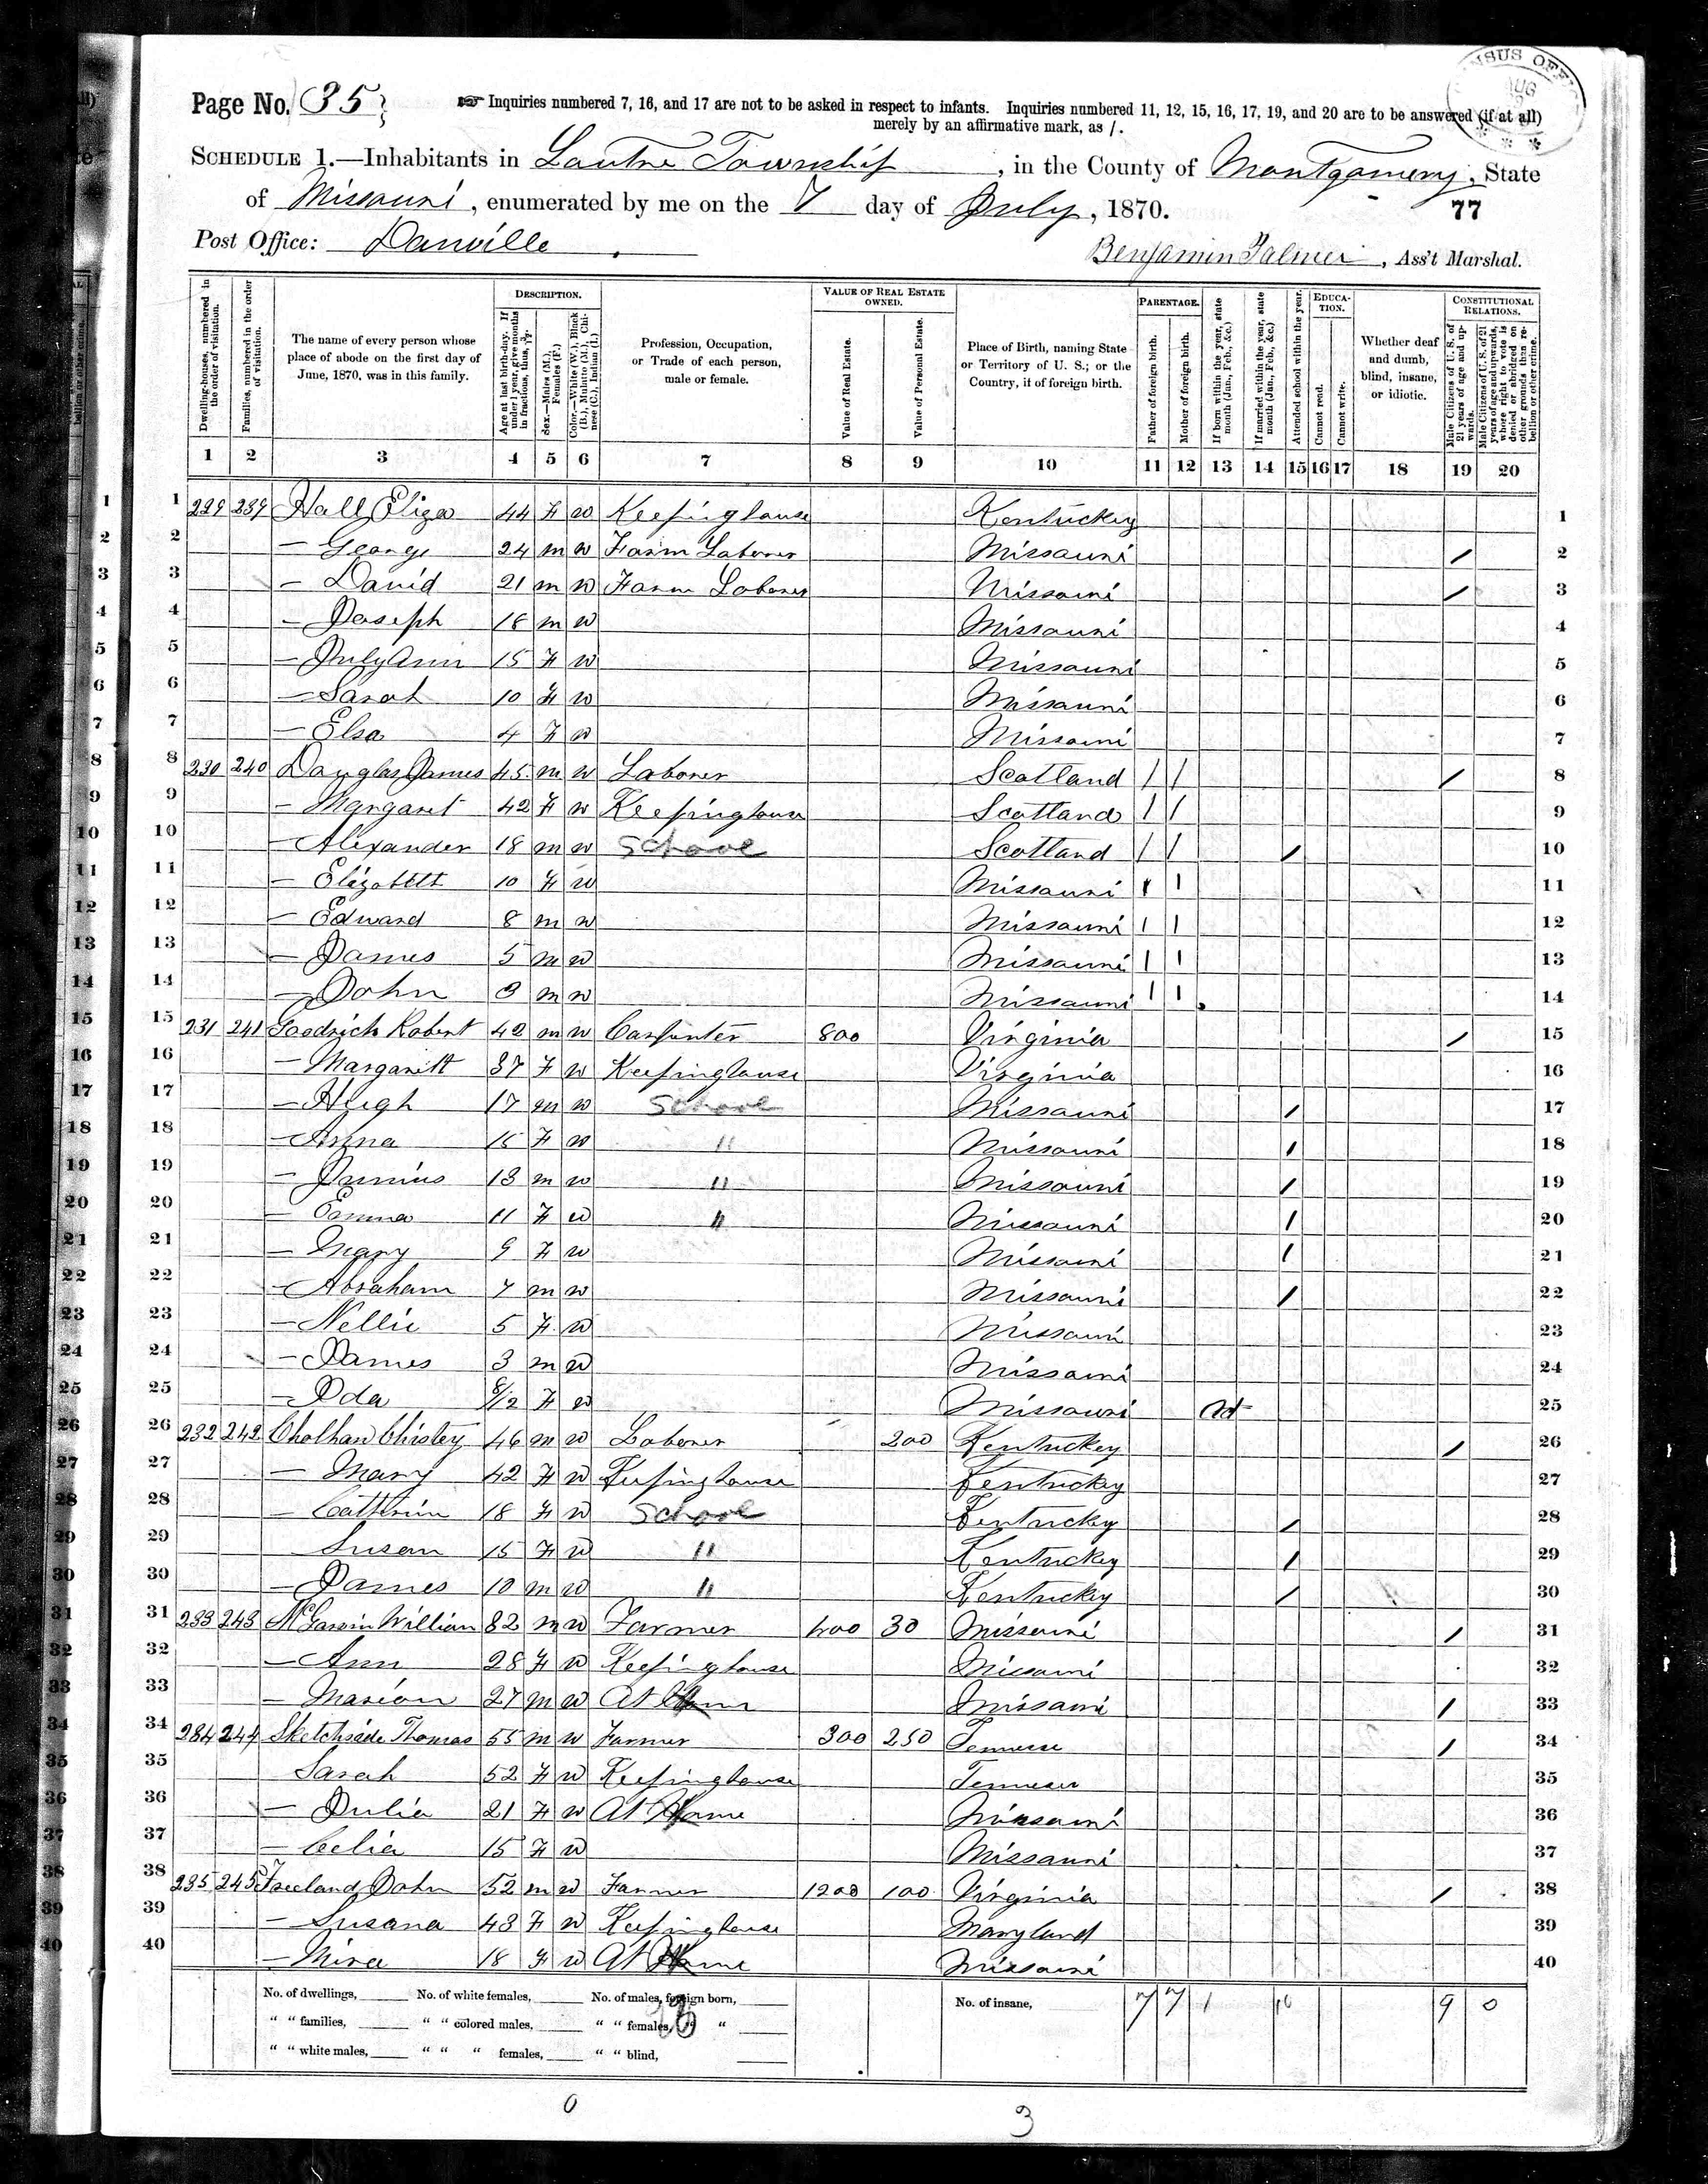 Page No. 35
Inquiries numbered 7, 16, and 17 are not to be asked in respect to infants. Inquiries numbered 11, 12, 15, 16, 17, 19, and 20 are to be answered (if at all)
merely by an affirmative mark, as /.
SCHEDULE 1.—Inhabitants in Loutre Township, in the County of Montgomery, State
of Missouri, enumerated by me on the 7 day of July, 1870.
77
Post Office: Danville
Benjamin Palmer, Ass't Marshal.
Dwelling-houses, numbered in the order of visitation.
Families, numbered in the order of visitation.
The name of every person whose place of abode on the first day of June, 1870, was in this family.
DESCRIPTION.
Age at last birth-day. If under 1 year, give months in fractions, thus, 3/12.
Sex.—Males (M.), Females (F.)
Color.—White (W.), Black (B.), Mulatto (M.), Chinese (C.), Indian (I.)
Profession, Occupation, or Trade of each person, male or female.
VALUE OF REAL ESTATE OWNED.
Value of Real Estate.
Value of Personal Estate.
Place of Birth, naming State or Territory of U. S.; or the Country, if of foreign birth.
PARENTAGE.
Father of foreign birth.
Mother of foreign birth.
If born within the year, state month (Jan., Feb., &c.)
If married within the year, state month (Jan., Feb., &c.)
Attended school within the year.
EDUCATION.
Cannot read.
Cannot write.
Whether deaf and dumb, blind, insane, or idiotic.
CONSTITUTIONAL RELATIONS.
Male Citizens of U. S. of 21 years of age and upwards.
Male Citizens of U. S. of 21 years of age and upwards, whose right to vote is denied or abridged on other grounds than rebellion or other crime.
1 2 3 4 5 6 7 8 9 10 11 12 13 14 15 16 17 18 19 20
1 229 239 Hall Eliza 44 F W Keeping house Kentucky 1
2 — George 24 M W Farm Laborer Missouri / 2
3 — David 21 M W Farm Laborer Missouri / 3
4 — Joseph 18 M W Missouri 4
5 — July Ann 15 F W Missouri 5
6 — Sarah 10 F W Missouri 6
7 — Elsa 4 F W Missouri 7
8 230 240 Douglas James 45 M W Laborer Scotland / / / 8
9 — Margaret 42 F W Keeping house Scotland / / 9
10 — Alexander 18 M W School Scotland / / / 10
11 — Elizabett 10 F W Missouri / / 11
12 — Edward 8 M W Missouri / / 12
13 — James 5 M W Missouri / / 13
14 — John 3 M W Missouri / / 14
15 231 241 Goodrich Robert 42 M W Carpenter 800 Virginia / 15
16 — Margarett 37 F W Keeping house Virginia 16
17 — Hugh 17 M W School Missouri / 17
18 — Anna 15 F W " Missouri / 18
19 — Junius 13 M W " Missouri / 19
20 — Emma 11 F W " Missouri / 20
21 — Mary 9 F W Missouri / 21
22 — Abraham 7 M W Missouri / 22
23 — Nellie 5 F W Missouri 23
24 — James 3 M W Missouri 24
25 — Ida 8/12 F W Missouri 25
26 232 242 Christey 46 M W Laborer 200 Kentucky / 26
27 — Mary 42 F W Keeping house Kentucky 27
28 — Catthrin 18 F W School Kentucky / 28
29 Susan 15 F W " Kentucky / 29
30 — James 10 M W " Kentucky / 30
31 233 243 William 32 M W Farmer 30 Missouri / 31
32 — Ann 28 F W Keeping house Missouri 32
33 — Marion 27 M W At Missouri / 33
34 234 244 Sketchside Thomas 55 M W Farmer 300 250 Tennessee / 34
35 Sarah 52 F W Keeping house Tennessee 35
36 — Julia 21 F W At Home Missouri 36
37 — Celia 15 F W Missouri 37
38 235 245 Freeland John 52 M W Farmer 1200 100 Virginia / 38
39 — Susana 43 F W Keeping house Maryland 39
40 — Mira 18 F W At Home Missouri 40
No. of dwellings, No. of white females, No. of males, foreign born, No. of insane, 7 7 1 10 9 0
" " families, " " colored males, " " females, " "
" " white males, " " " females, " " blind,
0 3